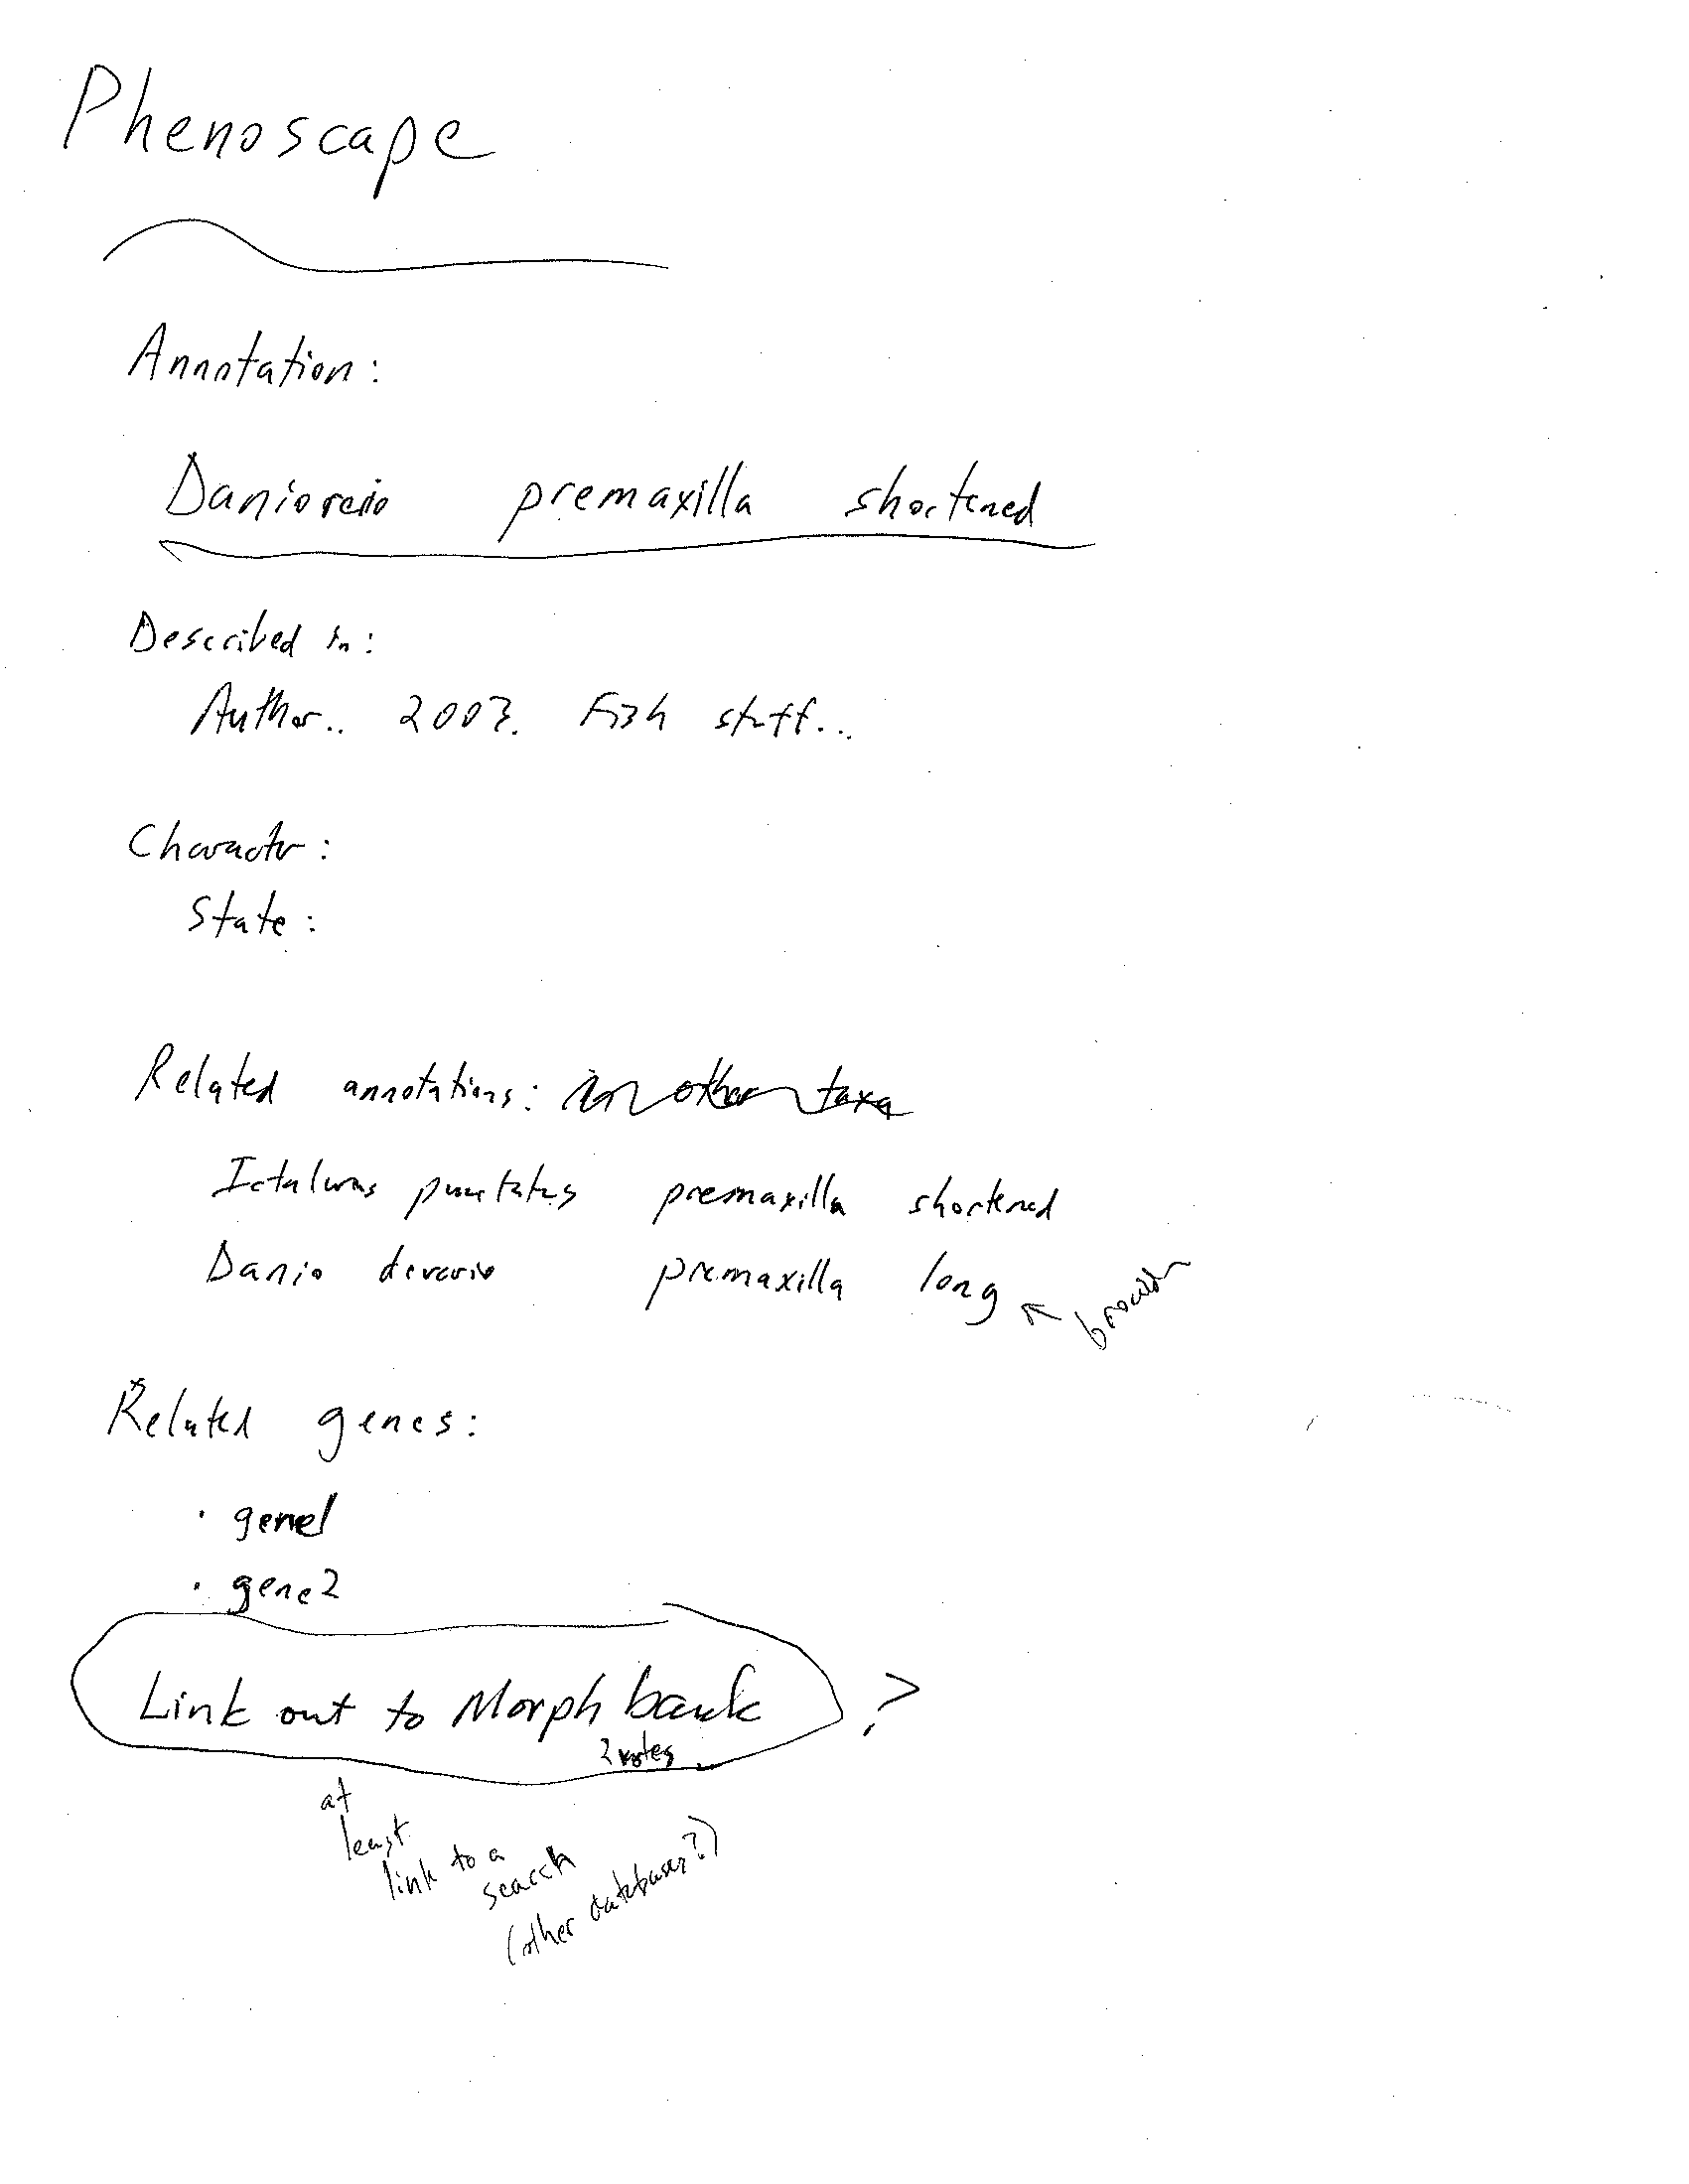 Phenoscape
Annotation:
Danio rerio premaxilla shortened
Described in:
Author.. 2003. Fish stuff...
Character:
State:
Related annotations: in other taxa
Ictalurus punctatus premaxilla shortened
Danio devario premaxilla long
broaden
Related genes:
· gene1
· gene2
Link out to Morphbank ?
2 votes
at
least
link to a
search
(other databases?)